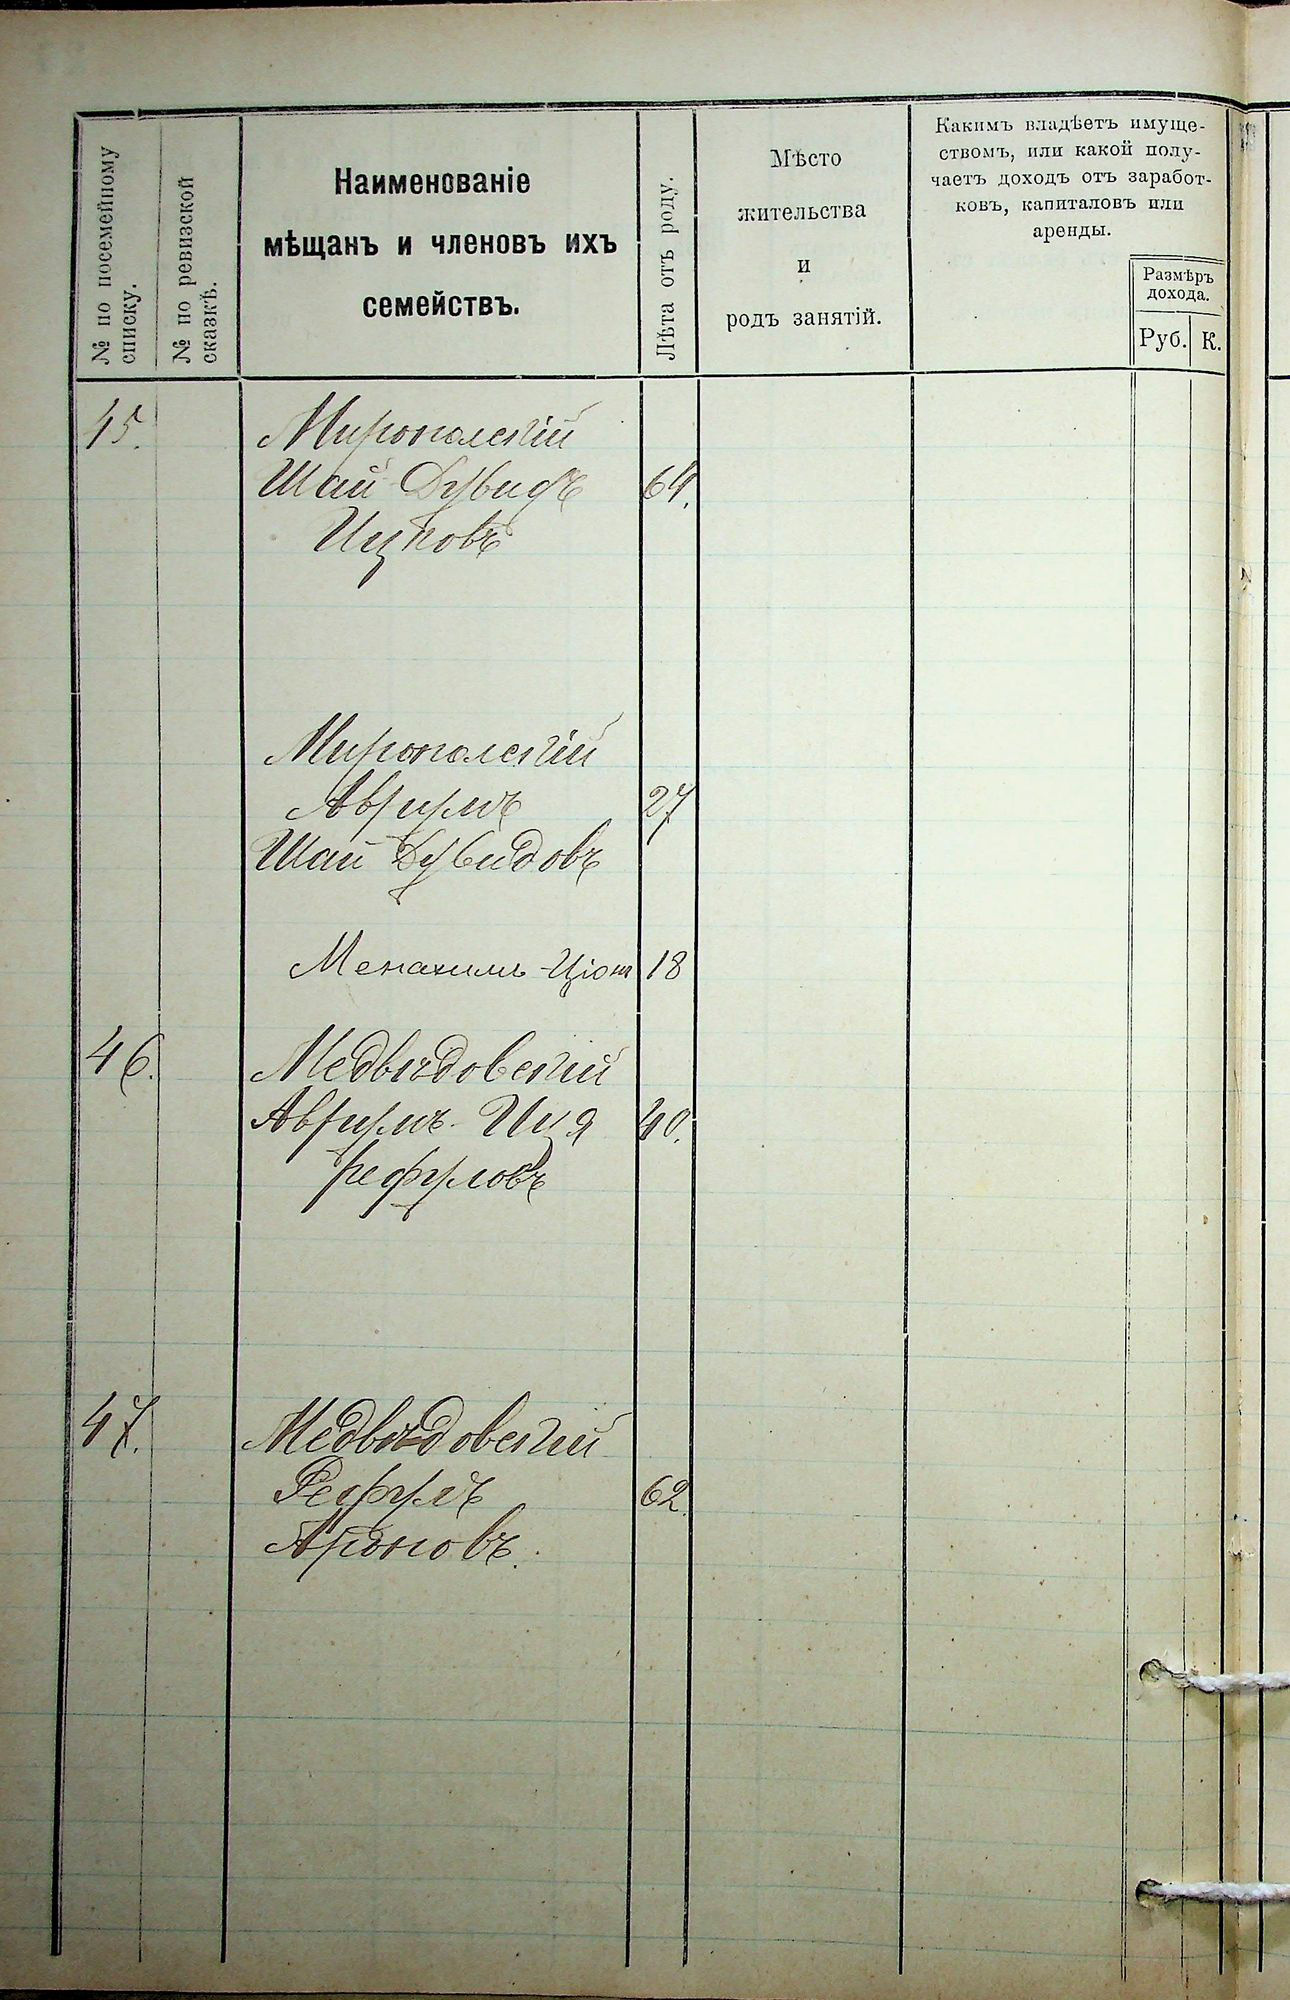 № по посемейному
списку.
№ по ревизской
сказкѣ.
Наименованіе
мѣщанъ и членовъ ихъ
семействъ.
Лѣта отъ роду.
Мѣсто
жительства
и
родъ занятій.
Какимъ владѣетъ имуще-
ствомъ, или какой полу-
чаетъ доходъ отъ заработ-
ковъ, капиталовъ или
аренды.
Размѣръ
дохода.
Руб. К.
45. Мирополскій
Шай Дувидъ 64.
Ицковъ
Мирополскій
Аврумъ 27
Шай Дувидовъ
Менахимъ 18
46. Медвѣдовскій
Аврумъ- Ица 40.
Рефуловъ
47. Медвѣдовскій
Рефулъ 62.
Ароновъ.